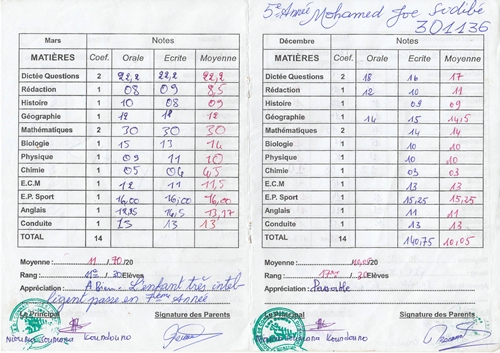 5e Année Mohamed Joe Sidibé
301136
Mars Notes
MATIÈRES Coef. Orale Ecrite Moyenne
Dictée Questions 2 22,2 22,2 22,2
Rédaction 1 08 09 8,5
Histoire 1 10 08 09
Géographie 1 12 12 12
Mathématiques 2 30 30 30
Biologie 1 15 13 14
Physique 1 09 11 10
Chimie 1 05 04 4,5
E.C.M 1 12 11 11,5
E.P. Sport 1 16,00 16,00 16,00
Anglais 1 14,5 13,17
Conduite 1 13 13 13
TOTAL 14
Moyenne : 11,70/20
Rang : 11e /30 Elèves
Appréciation : A. Bien L'enfant très intel-
ligent passe en 7ème Année
Le Principal Signature des Parents
Koundouno
Décembre Notes
MATIÈRES Coef. Orale Ecrite Moyenne
Dictée Questions 2 18 16 17
Rédaction 1 12 10 11
Histoire 1 09 09
Géographie 1 14 15 14,5
Mathématiques 2 14 14
Biologie 1 10 10
Physique 1 10 10
Chimie 1 03 03
E.C.M 1 13 13
E.P. Sport 1 15,25 15,25
Anglais 1 11 11
Conduite 1 13 13
TOTAL 14 140,75 10,05
Moyenne : 10,05/20
Rang : 17e /30 Elèves
Appréciation : Passable
Le Principal Signature des Parents
Koundouno